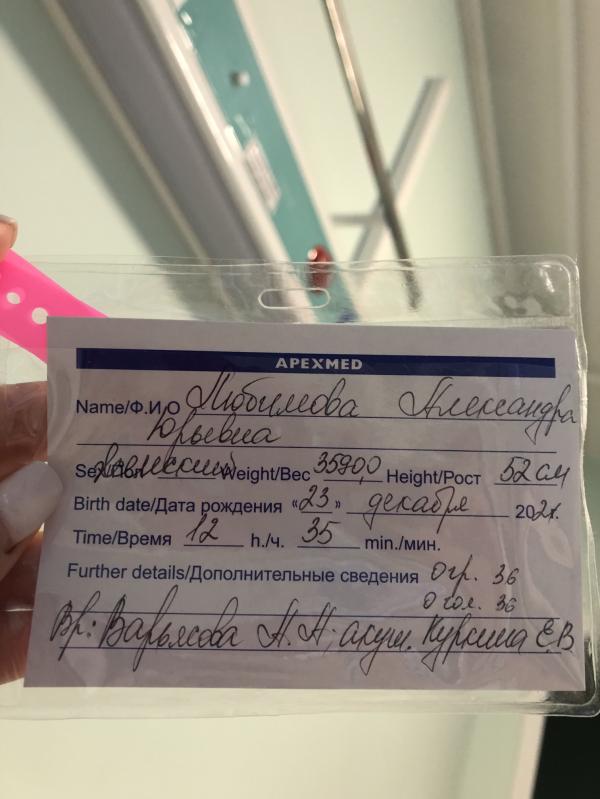 APEXMED
Name/Ф.И.О Любимова Александра
Юрьевна
Sex/Пол женский Weight/Вес 3590,0 Height/Рост 52 см
Birth date/Дата рождения «23» декабря 202 г.
Time/Время 12 h./ч. 35 min./мин.
Further details/Дополнительные сведения Огр. 36
Огол. 36
Вр: Варьясова А.Н; акуш. Куркина Е.В.